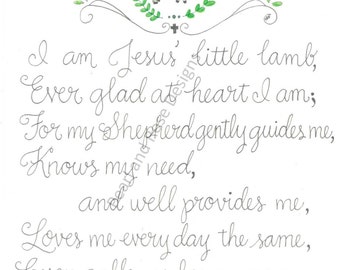 I am Jesus' little lamb,
Ever glad at heart I am;
For my Shepherd gently guides me,
Knows my need,
and well provides me,
Loves me every day the same,